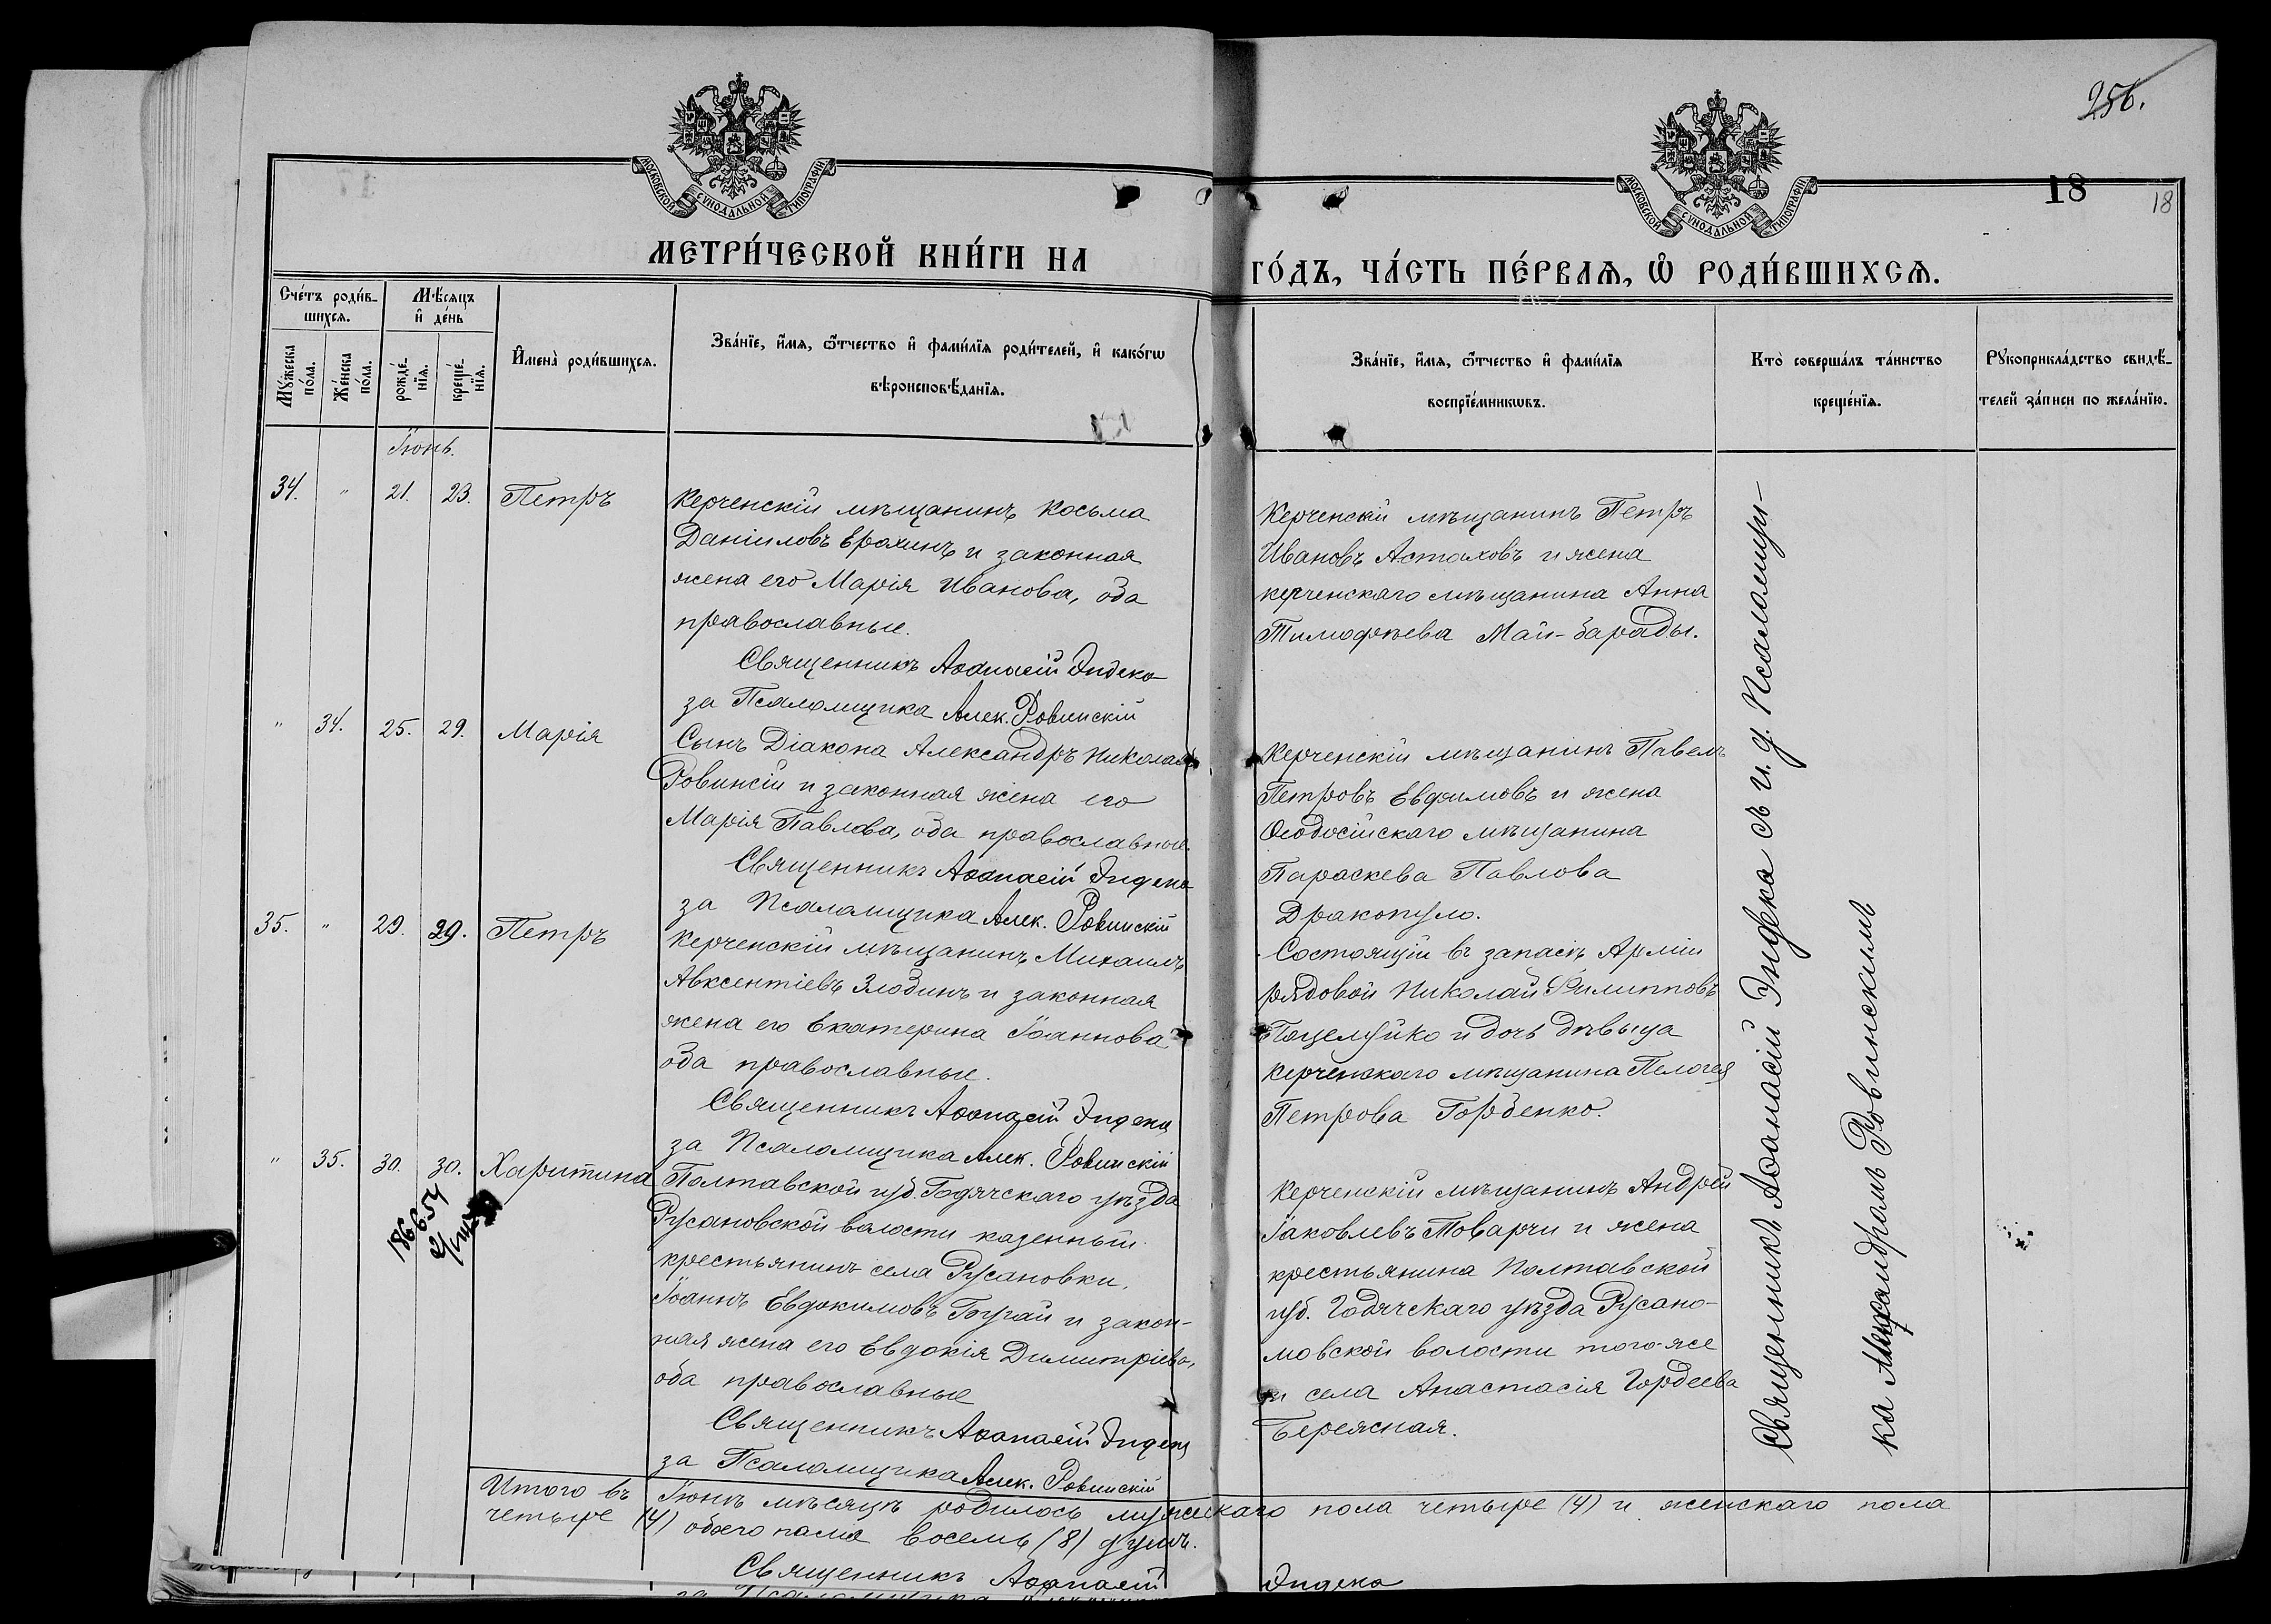 256.
18
18
МОСКОВСКОЙ СѴНОДАЛЬНОЙ ТИПОГРАФІИ
МОСКОВСКОЙ СѴНОДАЛЬНОЙ ТИПОГРАФІИ
МЕТРИ́ЧЕСКОЙ КНИ́ГИ НА
ГО́ДЪ, ЧА́СТЬ ПЕ́РВАѦ, Ѽ РОДИ́ВШИХСѦ.
Сче́тъ роди́в-
шихсѧ.
Мѣ́сѧцъ
и҆ де́нь
Мꙋ́жеска по́ла.
Же́нска по́ла.
рожде́-
нїѧ.
креще́-
нїѧ.
И҆мена̀ роди́вшихсѧ.
Зва́нїе, и҆́мѧ, ѻ҆́тчество и҆ фами́лїѧ роди́телей, и҆ како́гѡ
вѣроисповѣ́данїѧ.
Зва́нїе, и҆́мѧ, ѻ҆́тчество и҆ фами́лїѧ
воспрїе́мникѡвъ.
Кто̀ соверша́лъ та́инство
креще́нїѧ.
Рꙋкоприкла́дство свидѣ́-
телей за́писи по жела́нїю.
Іюнь.
34. " 21. 23. Петръ
Керченскій мѣщанинъ Косьма
Даніиловъ Ерохинъ и законная
жена его Марія Иванова, оба
православные.
Священникъ Аѳанасій Индека
за Псаломщика Алек. Ровинскій
Керченскій мѣщанинъ Петръ
Ивановъ Астаховъ и жена
керченскаго мѣщанина Анна
Тимофѣева Май-Зарады.
" 34. 25. 29. Марія
Сынъ Діакона Александръ Николаевъ
Ровинсій и законная жена его
Марія Павлова, оба православные.
Священникъ Аѳанасій Индека
за Псаломщика Алек. Ровинскій
Керченскій мѣщанинъ Павелъ
Петровъ Евфимовъ и жена
Ѳеодосійскаго мѣщанина
Параскева Павлова
Дракопуло.
35. " 29. 29. Петръ
Керченскій мѣщанинъ Михаилъ
Авксентіевъ Злобинъ и законная
жена его Екатерина Іоаннова
оба православные.
Священникъ Аѳанасій Индека
за Псаломщика Алек. Ровинскій
Состоящій въ запасѣ Арміи
рядовой Николай Филипповъ
Поцелуйко и дочь дѣвица
керченскаго мѣщанина Пелагея
Петрова Горбенко.
" 35. 30. 30. Харитина
Полтавской губ. Гадячскаго уѣзда
Русановской волости казенный
крестьянинъ села Русановки,
Іоаннъ Евдокимовъ Бугай и закон-
ная жена его Евдокія Димитріева,
оба православные
Священникъ Аѳанасій Индека
за Псаломщика Алек. Ровинскій
Керченскій мѣщанинъ Андрей
Іаковлевъ Товарчи и жена
крестьянина Полтавской
губ. Гадячскаго уѣзда Русано-
мовской волости того-же
и села Анастасія Гордеева
Бережная.
Священникъ Аѳанасій Индека съ и. д. Псаломщи-
ка Александромъ Ровинскимъ
Итого въ Іюнѣ мѣсяцѣ родилось мужескаго пола четыре (4) и женскаго пола
четыре (4) обоего пола восемь (8) душъ.
Священникъ Аѳанасій Индека
за Псаломщика